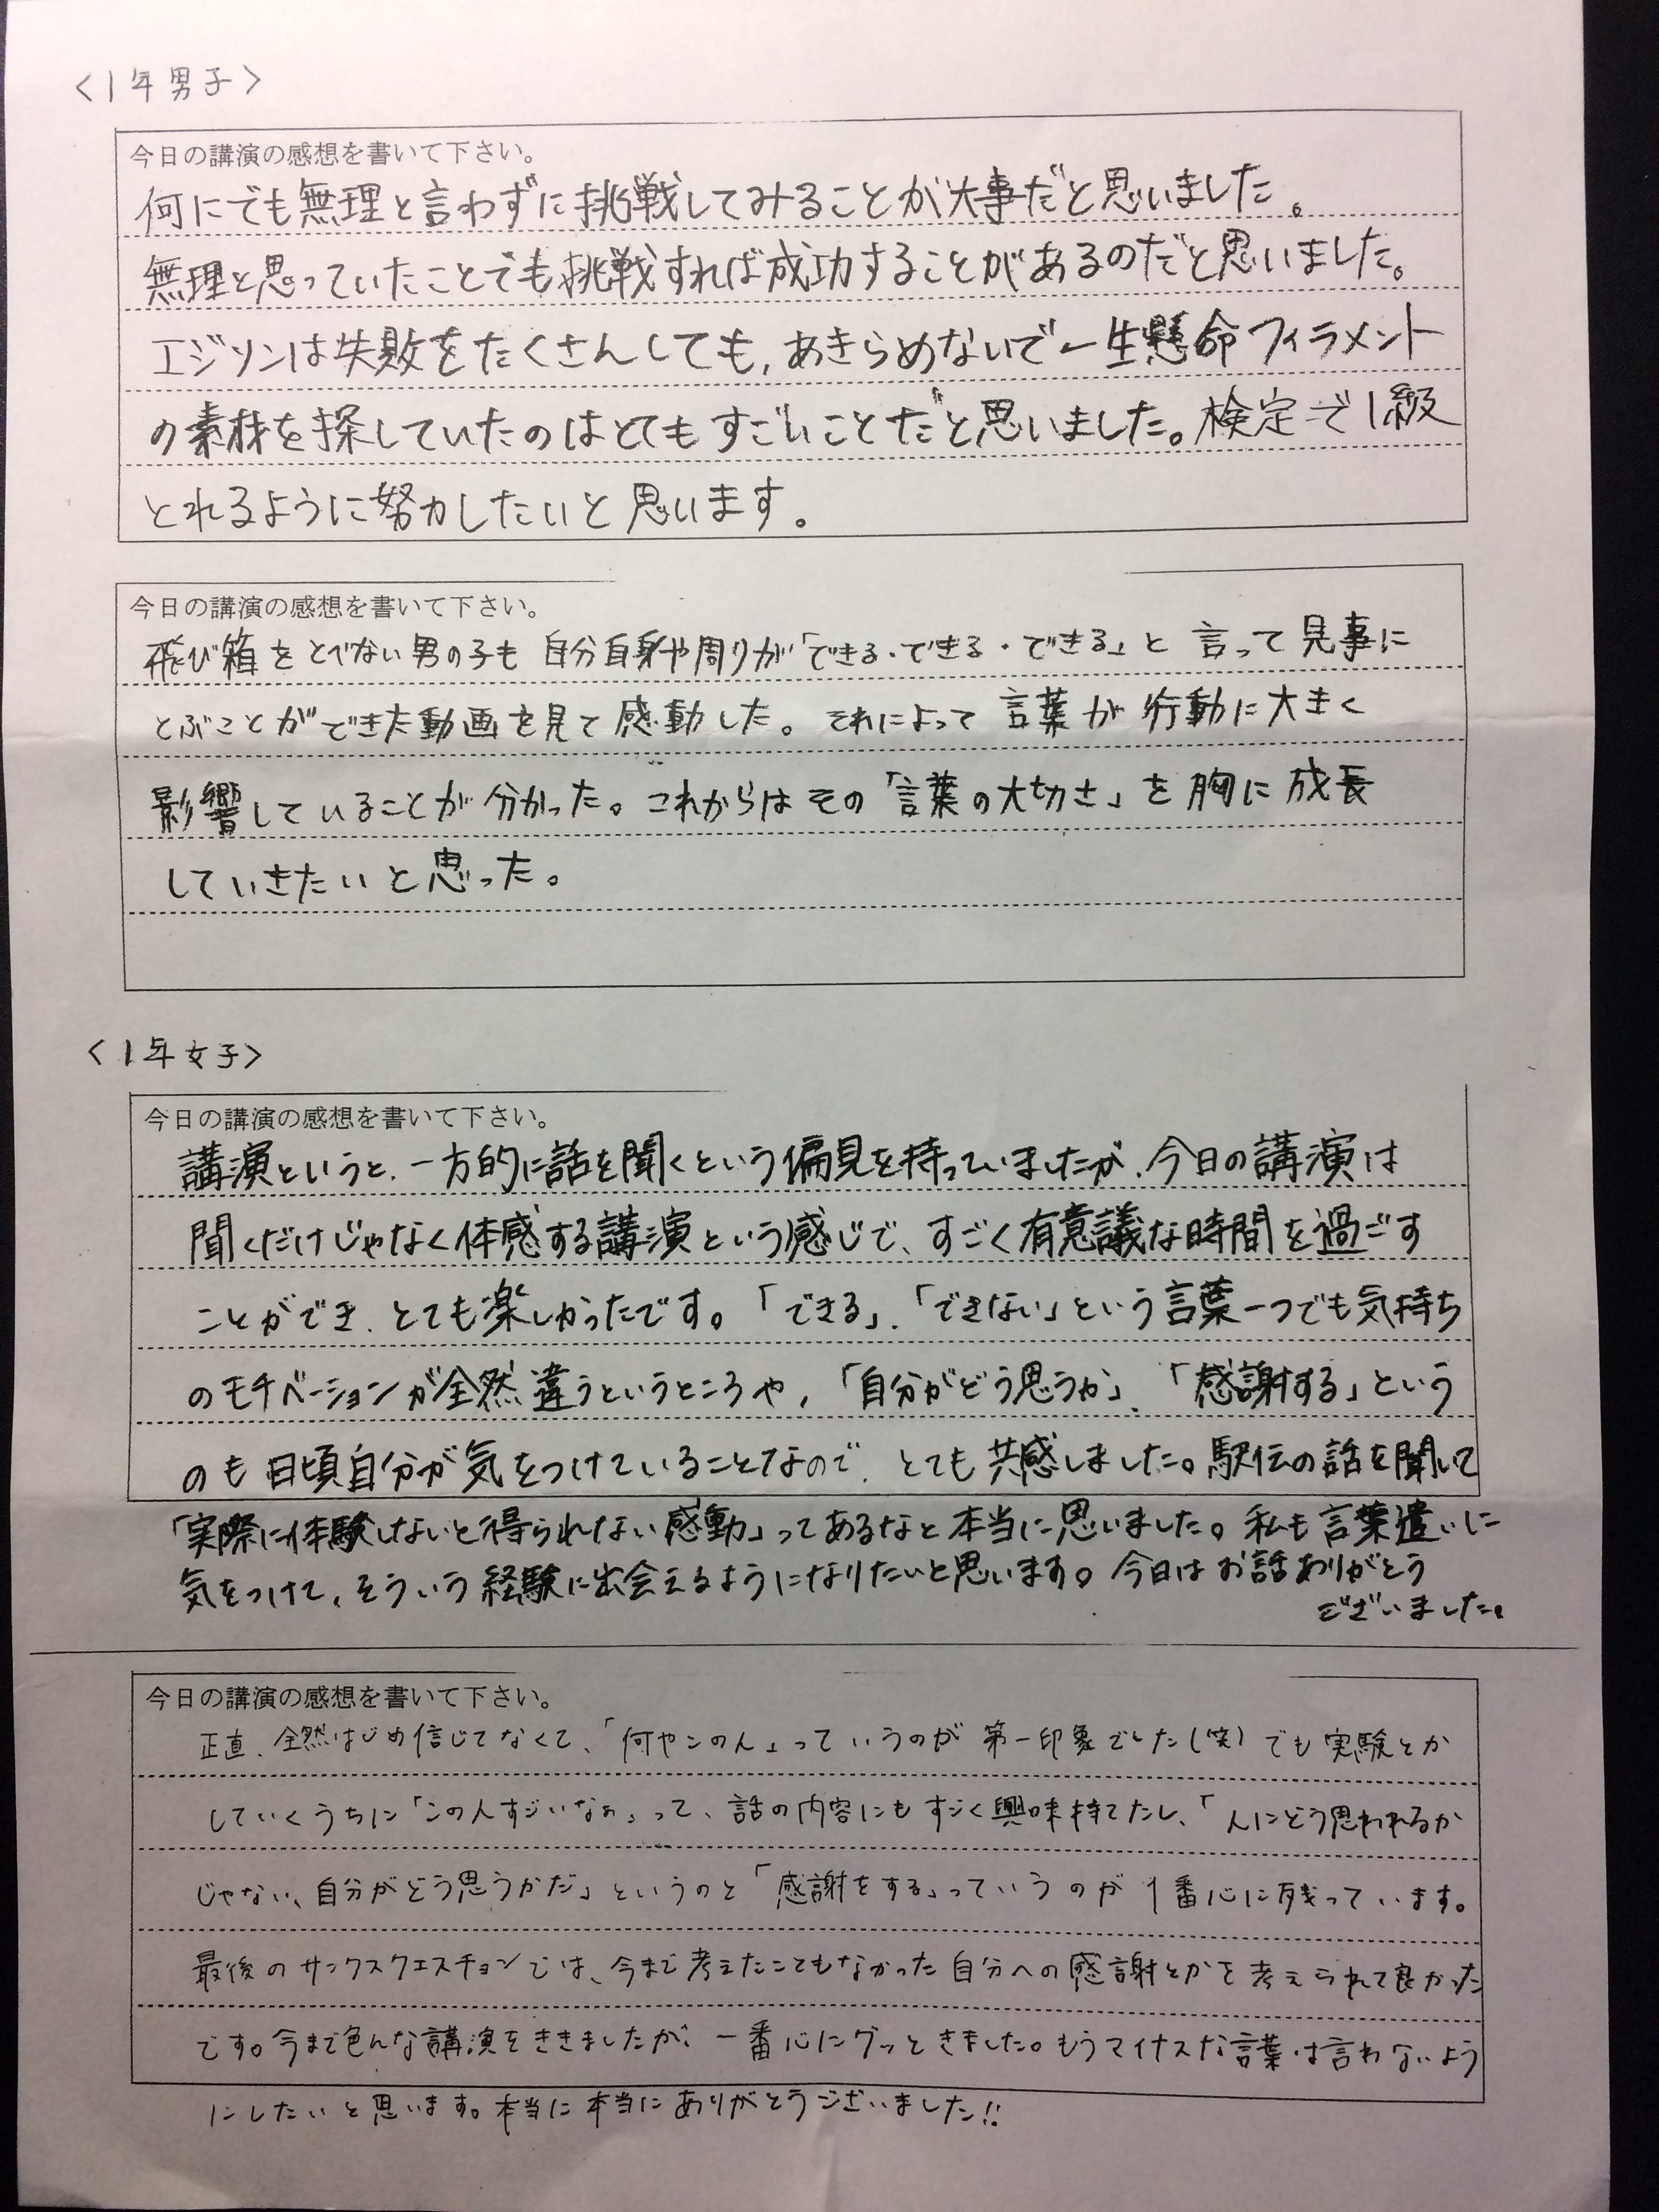 <1年男子>
今日の講演の感想を書いて下さい。
何にでも無理と言わずに挑戦してみることが大事だと思いました。
無理と思っていたことでも挑戦すれば成功することがあるのだと思いました。
エジソンは失敗をたくさんしても,あきらめないで一生懸命フィラメント
の素材を探していたのはとてもすごいことだと思いました。検定で1級
とれるように努力したいと思います。
今日の講演の感想を書いて下さい。
飛び箱をとべない男の子も自分自身や周りが「できる・できる・できる」と言って見事に
とぶことができた動画を見て感動した。それによって言葉が行動に大きく
影響していることが分かった。これからはその「言葉の大切さ」を胸に成長
していきたいと思った。
<1年女子>
今日の講演の感想を書いて下さい。
講演というと、一方的に話を聞くという偏見を持っていましたが、今日の講演は
聞くだけじゃなく体感する講演という感じで、すごく有意議な時間を過ごす
ことができ、とても楽しかったです。「できる」、「できない」という言葉一つでも気持ち
のモチベーションが全然違うというところや,「自分がどう思うか」、「感謝する」という
のも日頃自分が気をつけていることなので、とても共感しました。駅伝の話を聞いて
「実際に体験しないと得られない感動」ってあるなと本当に思いました。私も言葉遣いに
気をつけて、そういう経験に出会えるようになりたいと思います。今日はお話ありがとう
ございました。
今日の講演の感想を書いて下さい。
正直、全然はじめ信じてなくて、「何やこの人」っていうのが第一印象でした(笑)でも実験とか
していくうちに「この人すごいなぁ」って、話の内容にもすごく興味持てたし、「人にどう思われるか
じゃない、自分がどう思うかだ」というのと「感謝をする」っていうのが1番心に残っています。
最後のサンクスクエスチョンでは、今まで考えたこともなかった自分への感謝とかを考えられて良かった
です。今まで色んな講演をききましたが、一番心にグッときました。もうマイナスな言葉は言わないよう
にしたいと思います。本当に本当にありがとうございました!!